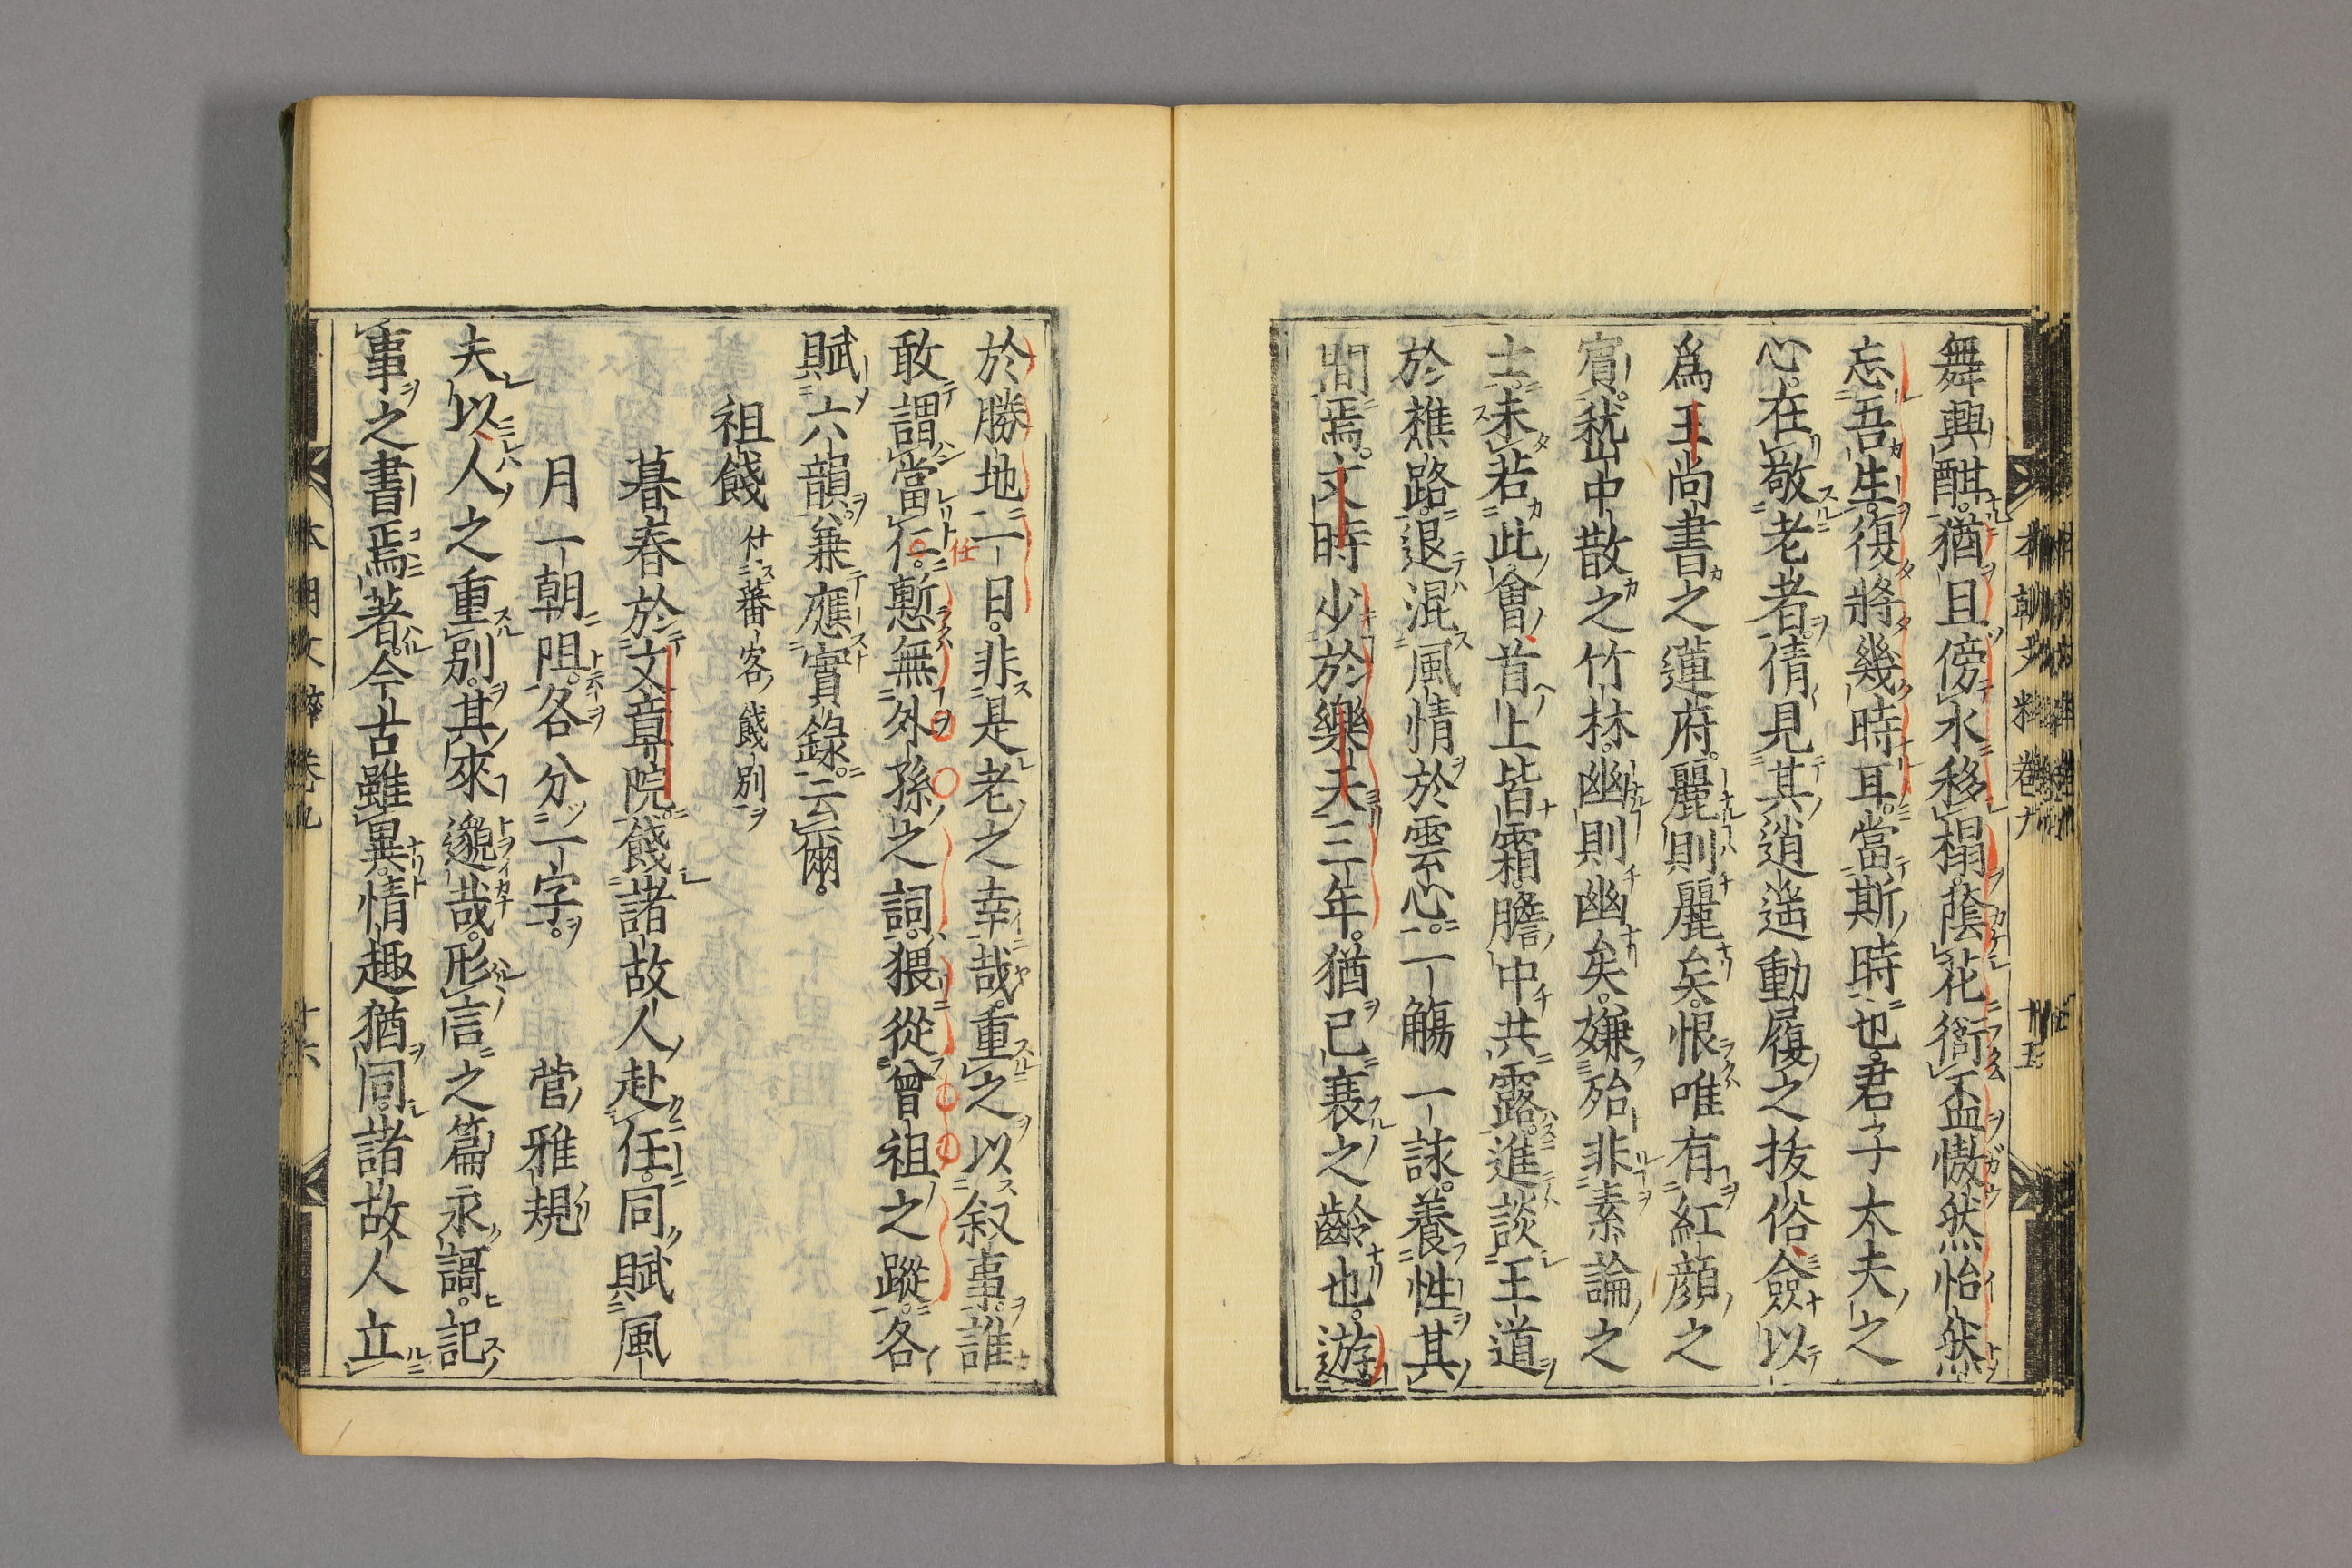 舞興酣。猶且傍水移榻。蔭花銜盃傲然怡然
忘吾生。復將幾時耳。當斯時也。君子太夫之
心。在敬老者。倩見其逍遥動履之抜俗僉以
爲王尚書之蓮府。麗則麗矣。恨唯有紅顔之
賓。嵆中散之竹林。幽則幽矣。嫌殆非素論之
士。未若此會首上皆霜。膽中共露。進談王道
於樵路。退混風情於雲心。一觴一詠。養性其
間焉。文時少於樂天三年。猶已衰之齡也。遊
本朝文粹卷九 十五
於勝地一日。非是老之幸哉。重之以叙事。誰
敢謂當仁。慙無外孫之詞。猥從曾祖之蹤。各
任
賦六韻。兼應實錄。云爾。
祖餞 付蕃客餞別
暮春於文章院。餞諸故人赴任。同賦風
月一朝阻。各分一字。 菅雅規
夫以人之重別。其來邈哉。形言之篇永謌。記
事之書焉著。今古雖異。情趣猶同。諸故人立
本朝文粹卷九 十六